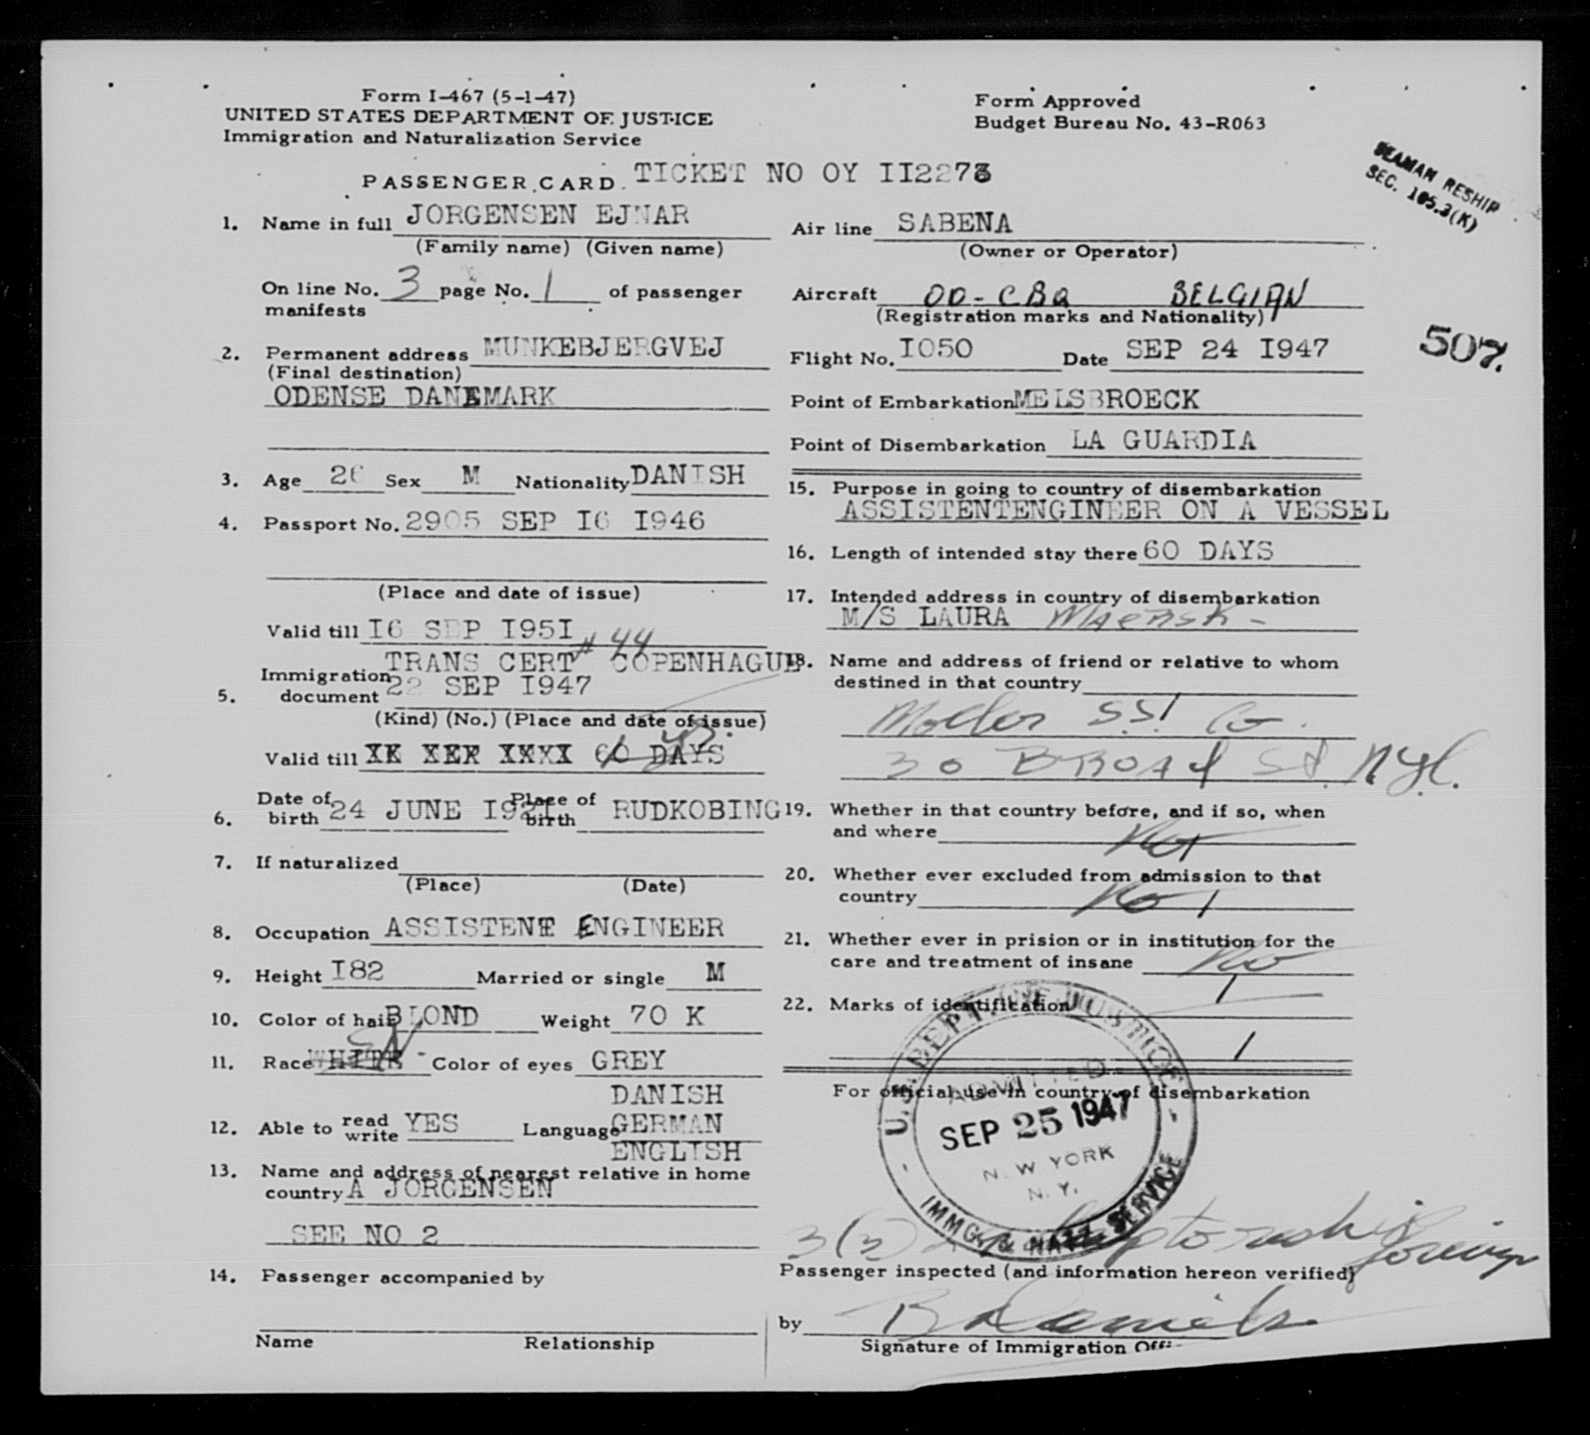 Form I-467 (5-1-47)
UNITED STATES DEPARTMENT OF JUSTICE
Immigration and Naturalization Service
Form Approved
Budget Bureau No. 43-R063
PASSENGER CARD. TICKET NO OY II2273
SEAMAN RESHIP
SEC. 105.3(K)
1. Name in full JORGENSEN EJNAR
(Family name) (Given name)
On line No. 3 page No. 1 of passenger
manifests
2. Permanent address MUNKEBJERGVEJ
(Final destination)
ODENSE DANEMARK
3. Age 26 Sex M Nationality DANISH
4. Passport No. 2905 SEP I6 I946
(Place and date of issue)
Valid till I6 SEP I95I
# 44
5. Immigration document TRANS CERT COPENHAGUE
22 SEP I947
(Kind) (No.) (Place and date of issue)
Valid till 60 DAYS
6. Date of birth 24 JUNE I921 Place of birth RUDKOBING
7. If naturalized
(Place) (Date)
8. Occupation ASSISTENT ENGINEER
9. Height I82 Married or single M
10. Color of hair BLOND Weight 70 K
11. Race WHITE Color of eyes GREY
12. Able to read write YES Language DANISH
GERMAN
ENGLISH
13. Name and address of nearest relative in home
country A JORGENSEN
SEE NO 2
14. Passenger accompanied by
Name Relationship
Air line SABENA
(Owner or Operator)
Aircraft OO-CBQ BELGIAN
(Registration marks and Nationality)
Flight No. I050 Date SEP 24 I947
507.
Point of Embarkation MELSBROECK
Point of Disembarkation LA GUARDIA
15. Purpose in going to country of disembarkation
ASSISTENTENGINEER ON A VESSEL
16. Length of intended stay there 60 DAYS
17. Intended address in country of disembarkation
M/S LAURA Maersk -
18. Name and address of friend or relative to whom
destined in that country
Moller S.S. Co.
30 BROAd St. NYC.
19. Whether in that country before, and if so, when
and where No
20. Whether ever excluded from admission to that
country No
21. Whether ever in prision or in institution for the
care and treatment of insane No
22. Marks of identification
For official use in country of disembarkation
U.S. DEPT. OF JUSTICE
ADMITTED
SEP 25 1947
NEW YORK
N. Y.
IMMG. & NATZ. SERVICE
3(5) to reship foreign
Passenger inspected (and information hereon verified)
by B Daniels
Signature of Immigration